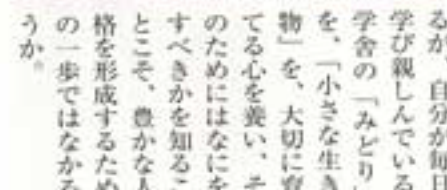 るが、自分が毎日
学び親しんでいる
学舎の「みどり
を、「小さな生き
物」を、大切に育
てる心を養い、そ
のためにはなにを
すべきかを知るこ
とこそ、豊かな人
格を形成するため
の一歩ではなかろ
うか。